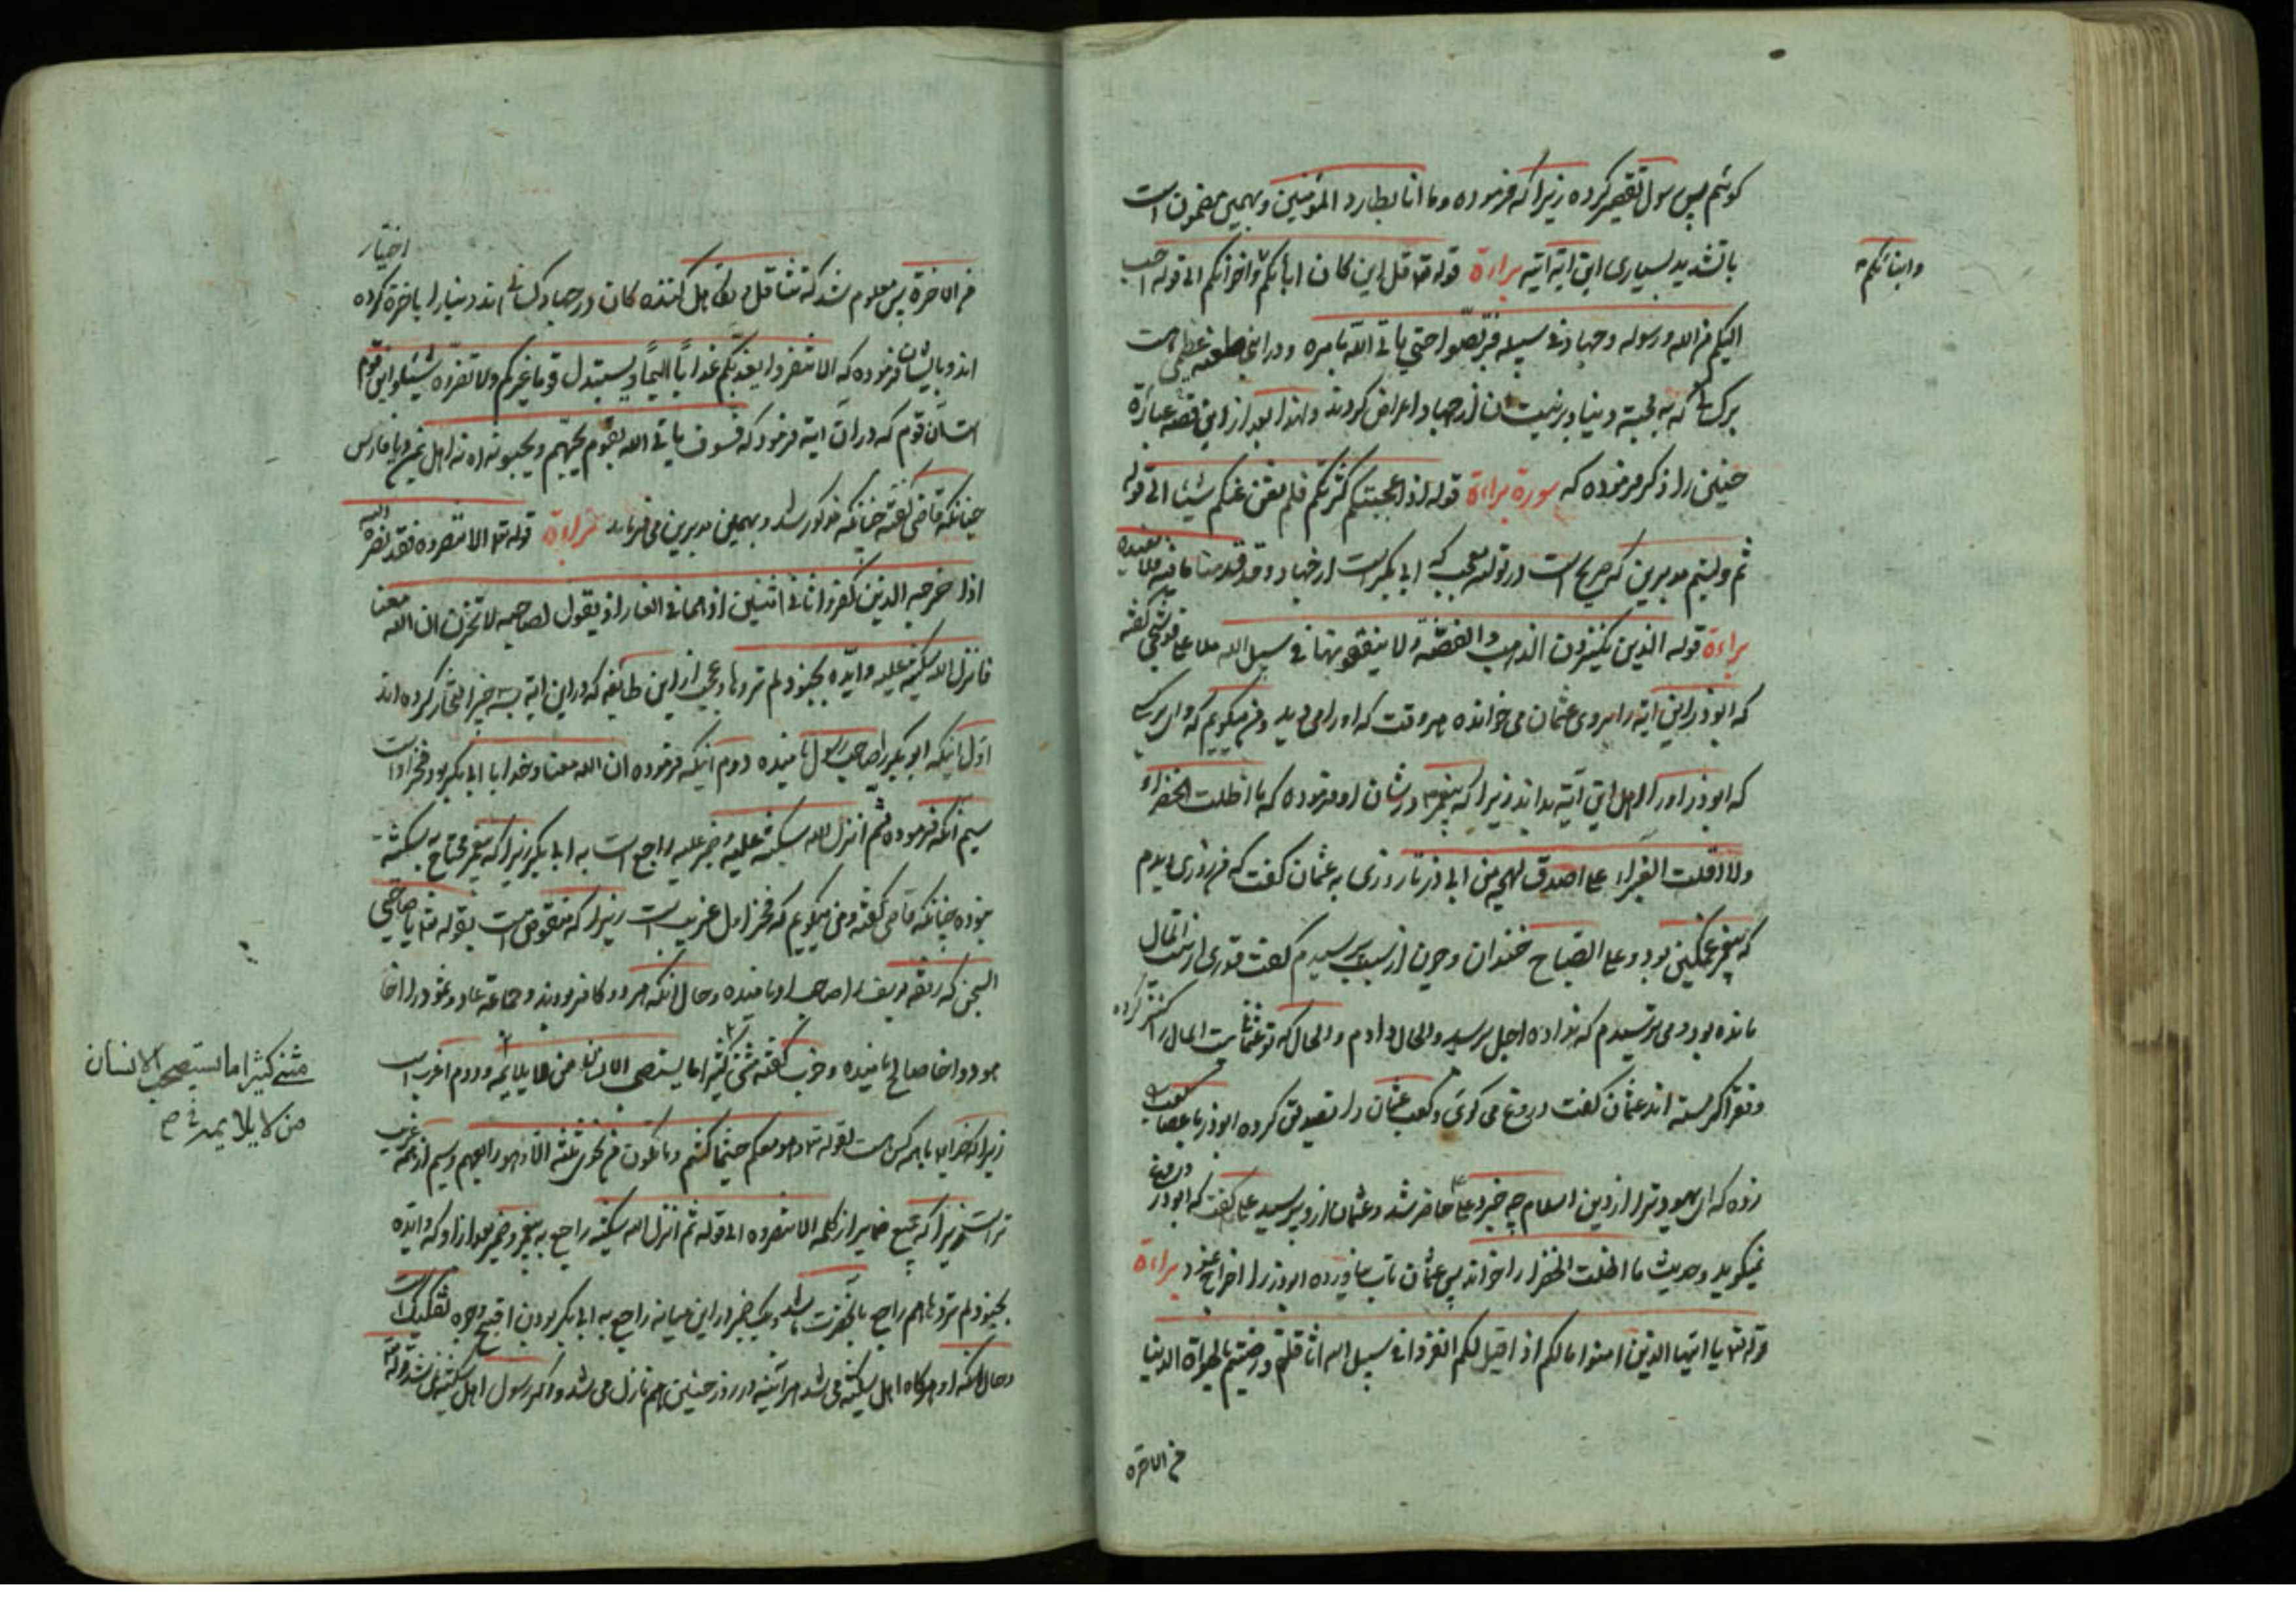 کوشم پس رسول تقصیر کرده زیرا که فرموده وما انا بطارد المؤمنین و بهمین مضمون است
با تشدید بسیاری این آیه آیه براءة قوله تع قل ان کان اباؤکم واخوانکم الی قوله احب
وابنائکم
الیکم من الله ورسوله وجهاد فی سبیله فتربصوا حتی یاتی الله بامره و در این طعنه عظیم است
برک که به محبة دنیا و بر نیت شان از جهاد اعراض کردند ولهذا بعد از این قصه عبارة
حنین را ذکر فرموده که سورة براءة قوله اذ اعجبتکم کثرتکم فلم تغن عنکم شیئا الی قوله
ثم ولیتم مدبرین که صریح است در تولد عجب که ابی بکر است از جهاد وقد قدمنا ما فیه
براءة قوله الذین یکنزون الذهب والفضة ولا ینفقونها فی سبیل الله ملا علی قوشچی گفته
که ابوذر این آیه را بر روی عثمان می خوانده هر وقت که او را می دید ومن میگویم که وای بر کسی
که ابوذر او را اهل این آیه بداند زیرا که پیغمبر در شان او فرموده که ما اظلت الخضراء
ولا اقلت الغبراء علی اصدق لهجه من ابی ذر تا روزی به عثمان گفت که من روزی دیدم
که پیغمبر غمگین بود و علی الصباح خندان و چون از سبب پرسیدم گفت قدری از بیت المال
مانده بود و می ترسیدم که نداده اجل برسد والحال دادم والحال که تو عثمان بیت المال را کنز کرده
وفقرا گرسنه اند عثمان گفت دروغ می گوئی و کعب عثمان را تصدیق کرده ابوذر با عصا بر کعب
زده که ای یهودی ترا از دین اسلام چه خبر و علی حاضر شد و عثمان از او پرسید علی گفت که ابوذر دروغ
نمیگوید وحدیث ما اظلت الخضرا را خواند پس عثمان تاب نیاورده ابوذر را اخراج نمود براءة
قوله تع یا ایها الذین امنوا مالکم اذا قیل لکم انفروا فی سبیل الله اثاقلتم ورضیتم بالحیوة الدنیا
من الاخرة
من الاخرة پس معلوم شد که تثاقل و تکاهل کنندہ کان در جهاد کسانی اند دنیا را باخرة اختیار کرده
اند و بایشان فرموده که الا تنفروا یعذبکم عذابا الیما ویستبدل قوما غیرکم ولا تضروه شیئا و این قوم
است آن قوم که در آن آیه فرمود که فسوف یاتی الله بقوم یحبهم ویحبونه نه اهل یمن و یا فارس
چنانکه قاضی گفته چنانکه مذکور شد و بهمین مدبرین می فرماید براءة قوله تع الا تنصروه فقد نصره الله
اذ اخرجه الذین کفروا ثانی اثنین اذ هما فی الغار اذ یقول لصاحبه لا تحزن ان الله معنا
فانزل الله سکینته علیه وایده بجنود لم تروها و عجب از این طایفه که در این آیه بسه چیز افتخار کرده اند
اول اینکه ابو بکر را صاحب رسول نامیده دوم اینکه فرموده ان الله معنا و خدا با ابی بکر بود و فخر او است
سیم آنکه فرموده ثم انزل الله سکینته علیه و ضمیر علیه راجع است به ابا بکر زیرا که پیغمبر محتاج به سکینه
نبوده چنانکه قاضی گفته ومن میگویم که فخر اول غریب است زیرا که منقوض است بقوله تع یا صاحبی
السجن که رفقه یوسف را صاحب او نامیده و حال آنکه هر دو کافر بودند و جماعة عاد و ثمود را اخا
هود و اخا صالح نامیده و خوب گفته متنبی کثیرا ما یستصحب الانسان من لا یلایمه و دوم اغرب است
مثنی کثیرا ما یستصحب الانسان
من لا یلایمه
زیرا که خدا با همه کس است لقوله تع وهو معکم حیثما کنتم وما یکون من نجوی ثلثة الا وهو رابعهم وسیم از همه غریب
تر است زیرا که جمیع ضمایر از کلمه الا تنصروه الی قوله ثم انزل الله سکینته راجع به پیغمبر و ضمیر بعد از او که وایده
بجنود لم تروها هم راجع بآنحضرت باشد و یک ضمیر در این میانه راجع به ابی بکر بودن اقبح وجوه تفکیک است
و حال آنکه او هرگاه اهل سکینه می شد هر آینه در روز حنین هم نازل می شد و اگر رسول اهل سکینه نباشد قوله تع